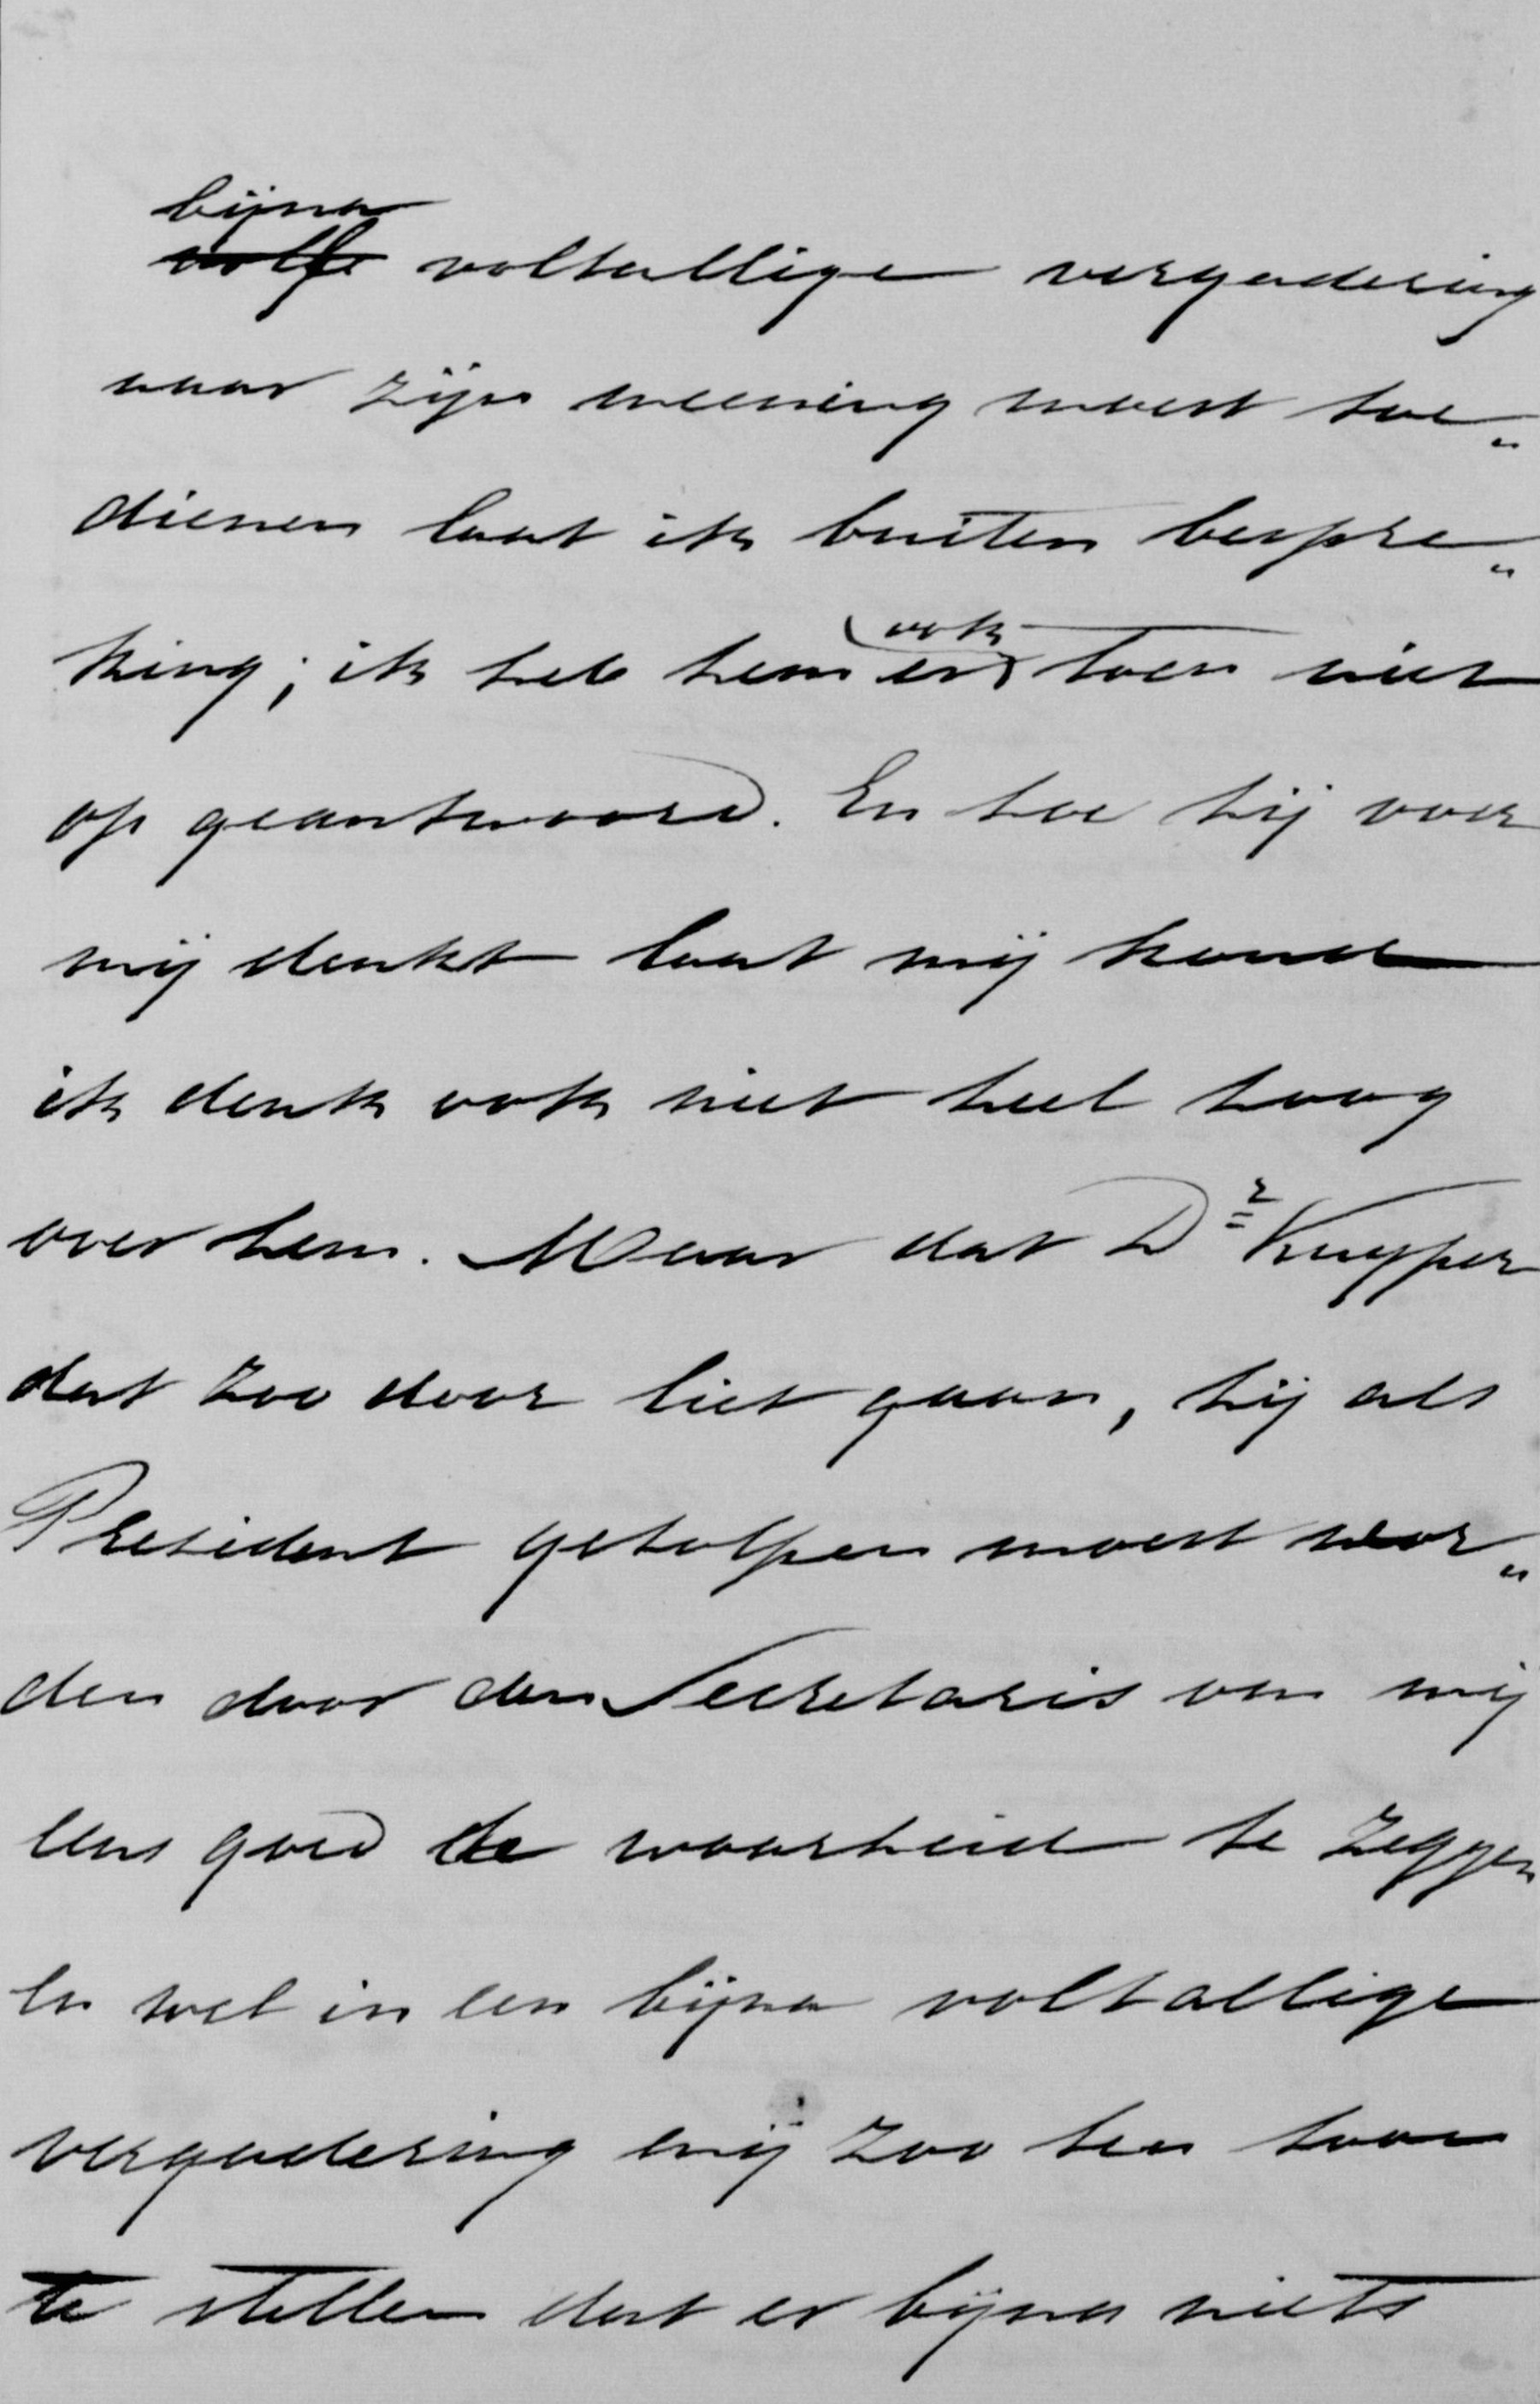 bijna
volle voltallige vergadering
naar zijn meening moest toe„
dienen laat ik buiten bespre„
king; ik heb hem er ook toen niet
op geantwoord. En hoe hij over
mij denkt laat mij koud
ik denk ook niet heel hoog
over hem. Maar dat Dr Kuyper
dat zoo door liet gaan, hij als
President geholpen moest wor„
den door den Secretaris om mij
eens goed de waarheid te zeggen
en wel in een bijna voltallige
vergadering mij zoo ten toon
te stellen dat er bijna niets